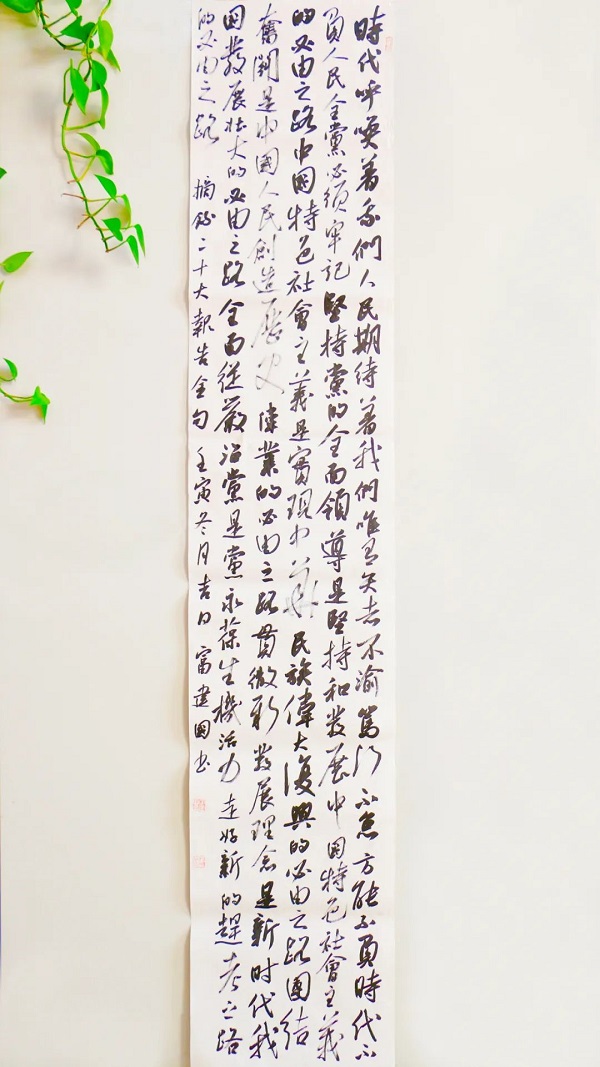 時代呼喚着我們人民期待着我們唯有矢志不渝篤行不怠方能不負時代不
負人民全黨必須牢記堅持黨的全面領導是堅持和發展中國特色社會主義
的必由之路中國特色社會主義是實現中華民族偉大復興的必由之路團結
奮鬥是中國人民創造歷史偉業的必由之路貫徹新發展理念是新时代我
國發展壯大的必由之路全面從嚴治黨是黨永葆生機活力走好新的趕考之路
的必由之路 摘錄二十大報告金句 壬寅冬月吉日 富建國书